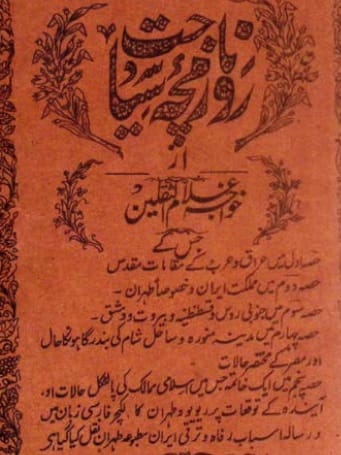 روزنامچۂ سیاحت
از
خواجہ غلام الثقلین
جس کے
حصہ اول میں عراق و عرب کے مقامات مقدس
حصہ دوم میں مملکت ایران و خصوصاً طہران ۔
حصہ سوم میں جنوبی روس و قسطنطنیہ و بیروت و دمشق ۔
حصہ چہارم میں مدینہ منورہ و ساحل شام کی بندرگاہونکا حال
اور مصر کے مختصر حالات
حصہ پنجم میں ایک خاتمہ جس میں اسلامی ممالک کی پالٹکل حالات او،
آیندہ کے توقعات پر ریویو و طہران کا لکچر فارسی زبان میں
و رسالہ اسباب رفاہ و ترقی ایران مطبوعہ طہران نقل کیا گیا ہر